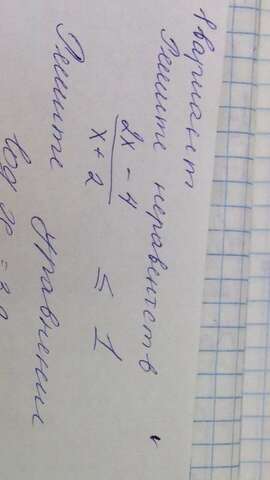 вариант
Решите неравенств
2x - 4
x + 2
≤ 1
Решите уравнения
log x =